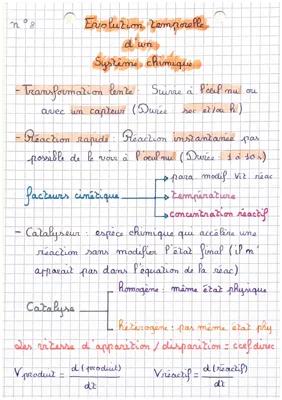 n°8
Evolution temporelle
d'un
Système chimique
- Transformation lente : Suivre à l'œil nu ou
avec un capteur (Durée sec et/ou h)
- Réaction rapide : Réaction instantanée pas
possible de le voir à l'œil nu (Durée : 1 à 10 s)
→ para. modif. vit. réac
facteurs cinétique → température
→ concentration réactif
- Catalyseur : espèce chimique qui accélère une
réaction sans modifier l'état final (il n'
apparait pas dans l'équation de la réac)
homogène : même état physique
Catalyse
hétérogène : pas même état phy
Les vitesse d'apparition / disparition = coef direc
V produit = d(produit) / dt V réactif = d(réactif) / dt